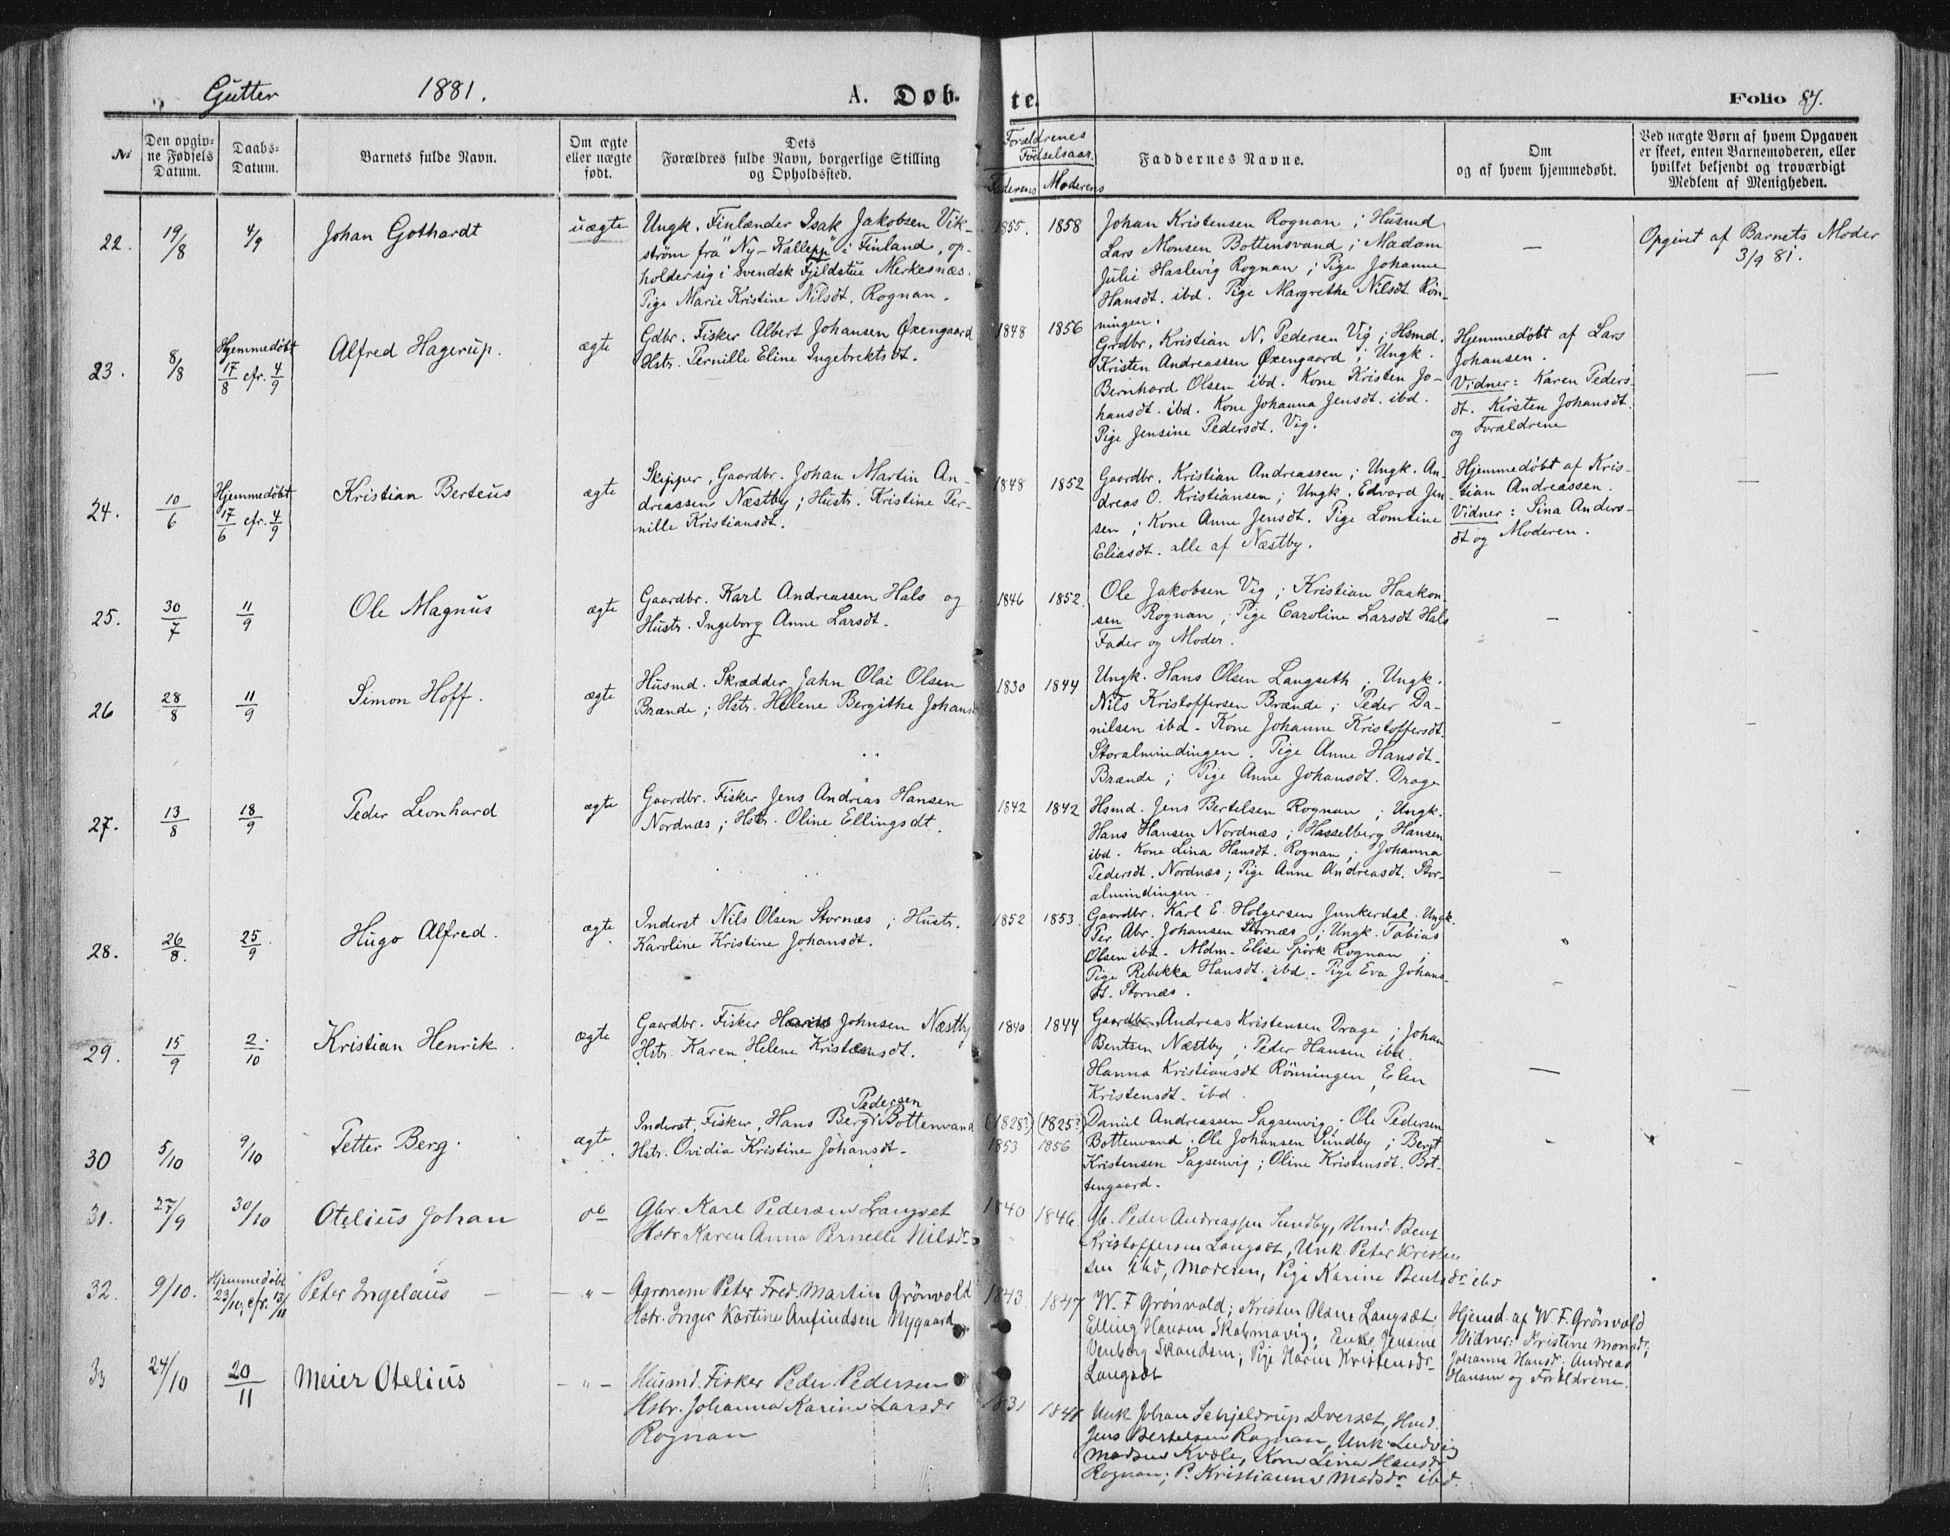 Gutter 1881. A. Døb- te. Folio 87.
No
Den opgiv-
ne Fødsels
Datum.
Daabs-
Datum.
Barnets fulde Navn.
Om ægte
eller uægte
født.
Dets
Forældres fulde Navn, borgerlige Stilling
og Opholdssted.
Forældrenes
Fødselsaar.
Faderens Moderens
Faddernes Navne.
Om
og af hvem hjemmedøbt.
Ved uægte Børn af hvem Opgaven
er skeet, enten Barnemoderen, eller
hvilket bekjendt og troværdigt
Medlem af Menigheden.
22. 19/8 4/9 Johan Gothardt uægte
Ungk. Finlænder Isak Jakobsen Vik-
strøm fra Ny-Kallepp i Finland, op-
holder sig i svendsk Fjeldstue Merkesnæs.
Pige Marie Kristine Nilsdt. Rognan.
1855. 1858
Johan Kristensen Rognan; Husmd
Lars Monsen Bottensvand; Madam
Julie Haslevig Rognan; Pige Johanne
Hansdt. ibd. Pige Margrethe Nilsdt Røn-
ningen.
—
Opgivet af Barnets Moder
3/9 81.
23. 8/8 Hjemmedøbt
17/8 cfr. 4/9
Alfred Hagerup. ægte
Gdbr. Fisker Albert Johansen Øxengaard
Hstr. Pernille Eline Ingebrektsdt.
1848 1856
Grdbr. Kristian N. Pedersen Vig; Hsmd.
Kristen Andreassen Øxengaard; Ungk.
Bernhard Olsen ibd. Kone Kristen Jo-
hansdt. ibd. Kone Johanna Jensdt. ibd.
Pige Jensine Pedersdt. Vig.
Hjemmedøbt af Lars
Johansen.
Vidner: Karen Peders-
dt. Kirsten Johansdt.
og Forældrene
—
24. 10/6 Hjemmedøbt
17/6 cfr. 4/9
Kristian Berteus ægte
Skipper, Gaardbr. Johan Martin An-
dreassen Næstby; Hustr. Kristine Per-
nille Kristiansdt.
1848 1852
Gaardbr. Kristian Andreassen; Ungk. An-
dreas O. Kristiansen; Ungk. Edvard Jen-
sen; Kone Anne Jensdt. Pige Lomtine
Eliasdt. alle af Næstby.
Hjemmedøbt af Kris-
tian Andreassen.
Vidner: Sina Anders-
dt og Moderen.
—
25. 30/7 11/9 Ole Magnus ægte
Gaardbr. Karl Andreassen Hals og
Hustr. Ingeborg Anne Larsdt.
1846 1852.
Ole Jakobsen Vig; Kristian Haakon-
sen Rognan; Pige Caroline Larsdt Hals
Fader og Moder.
—
26 28/8 11/9 Simon Hoff. ægte
Husmd. Skrædder Jahn Olai Olsen
Brænde; Hstr. Helene Bergithe Johans
1830 1844
Ungk. Hans Olsen Langseth; Ungk.
Nils Kristoffersen Brænde; Peder Da-
nilsen ibd. Kone Johanne Kristoffersdt.
Storalmindingen. Pige Anne Hansdt.
Brænde; Pige Anne Johansdt. Drage
—
27. 13/8 18/9 Peder Leonhard ægte
Gaardbr. Fisker Jens Andrias Hansen
Nordnæs; Hstr. Oline Ellingsdt.
1842 1842
Hsmd. Jens Bertelsen Rognan; Ungk.
Hans Hansen Nordnæs; Hasselberg Hansen
ibd. Kone Lina Hansdt. Rognan; Johanna
Pedersdt. Nordnæs; Pige Anne Andreasdt. Stor-
almindingen.
—
28. 26/8. 25/9 Hugo Alfred. ægte
Inderst Nils Olsen Stornæs; Hustr.
Karoline Kristine Johansdt.
1852 1853.
Gaardbr. Karl E. Holgersen Junkerdal. Ungk.
Per Abr. Johansen Stornæs; Ungk. Tobias
Olsen ibd. Mdm. Elise Spörk Rognan;
Pige Rebekka Hansdt. ibd. Pige Eva Johans-
dt. Stornæs.
29. 15/9 2/10 Kristian Henrik. ægte
Gaardbr. Fisker Johnsen Næstby
Hstr. Karen Helene Kristensdt.
1840 1844
Gaardbr. Andreas Kristensen Drage; Johan
Bentsen Næstby; Peder Hansen ibd.
Hanna Kristiansdt Rönningen, Elen
Kristensdt. ibd.
—
30 5/10 9/10 Petter Berg. ægte
Pedersen
Inderst, Fisker, Hans Berg Bottenvand
Hstr. Ovidia Kristine Johansdt.
(1828?) (1825?)
1853 1856
Daniel Andreassen Sagsenvig; Ole Pedersen
Bottenvand; Ole Johansen Sundby; Bergt
Kristensen Sagsenvig; Oline Kristensdt. Bot-
tengaard.
31. 27/9 30/10 Otelius Johan do
Gbr. Karl Pedersen Langset
Hstr Karen Anna Pernelle Nilsdr
1840 1846
Gb. Peder Andreassen Sundby, Hmd. Bent
Kristoffersen Langsdt, Unk. Peter Kristen
sen ibd, Moderen, Pige Karine Bentsdr ibd
32. 9/10. Hjemmedøbt
23/10, cfr. 13/11
Peter Ingelaus — „ —
Agronom Peter Fred. Martin Grönvold
Hstr. Inger Kartine Anfindsen Nygaard
1843. 1847
W. F Grønvold; Kristen Olsen Langsæt.
Elling Hansen Skabmavig; Enke Jensine
Venberg Skandsen; Pige Karen Kristensdr
Langsdt
Hjemd. af W. F. Grönvold
Vidner: Kristine Monsdr,
Johanna Hansdr. Andreas
Hansen og Forældrene.
33 24/10 20/11 Meier Otelius — „ —
Husmd. Fisker Peder Pedersen
Hstr. Johanna Karine Larsdr
Rognan
1831 1841
Unk Johan Schjeldrup Dverset, Hmd.
Jens Bertelsen Rognan, Unk. Ludvig
Madsen Kvæle, Kone Lina Hansdr
Rognan; P. Kristianna Madsdr ibd.